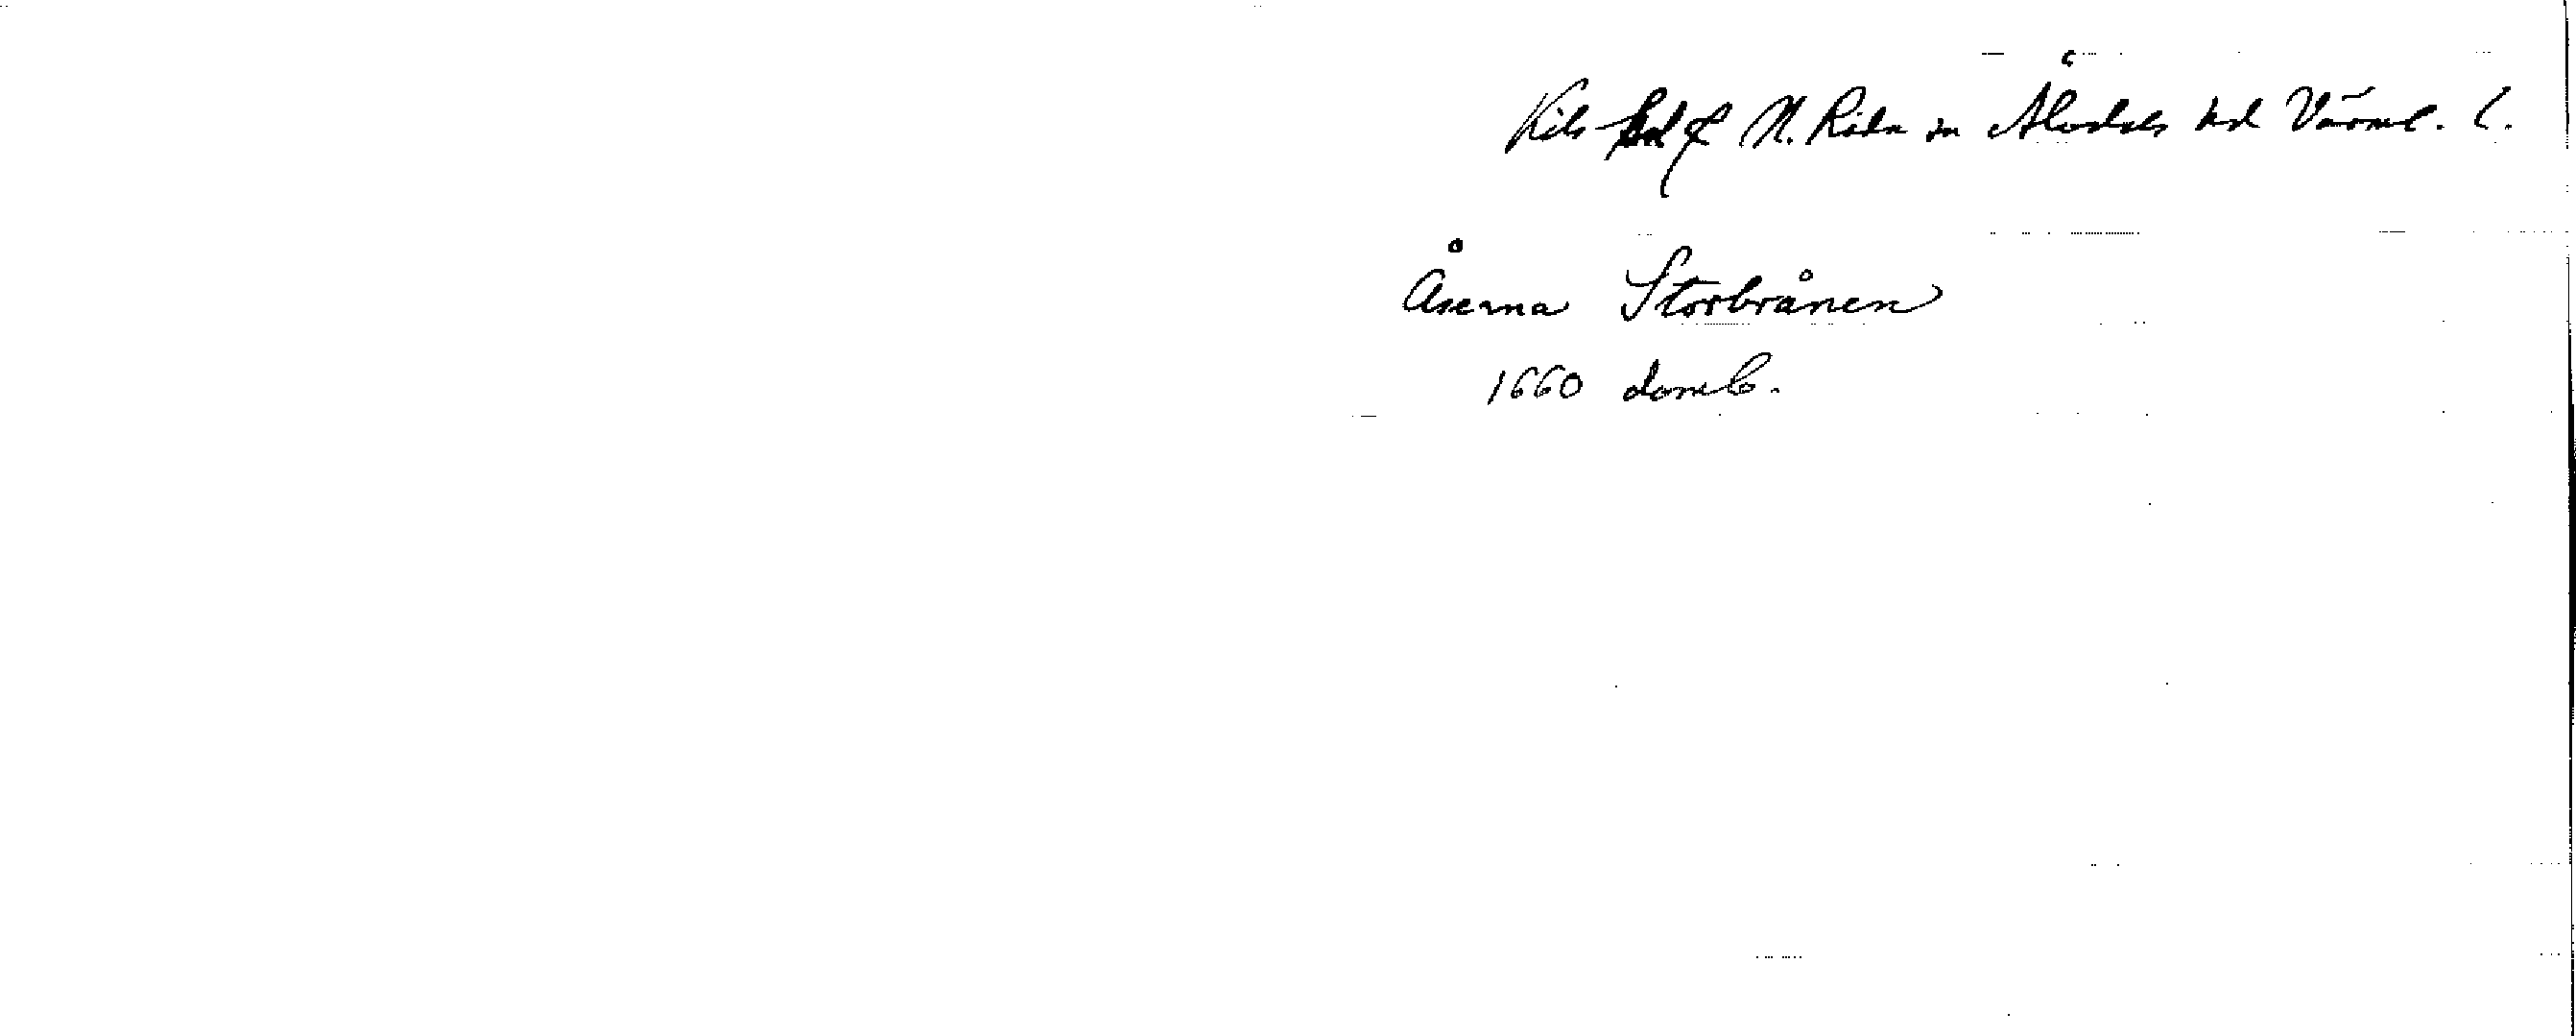 Kils hd f N. Råda sn Älvdals hd Värml. l.
Åserna Storbrånen
1660 domb.